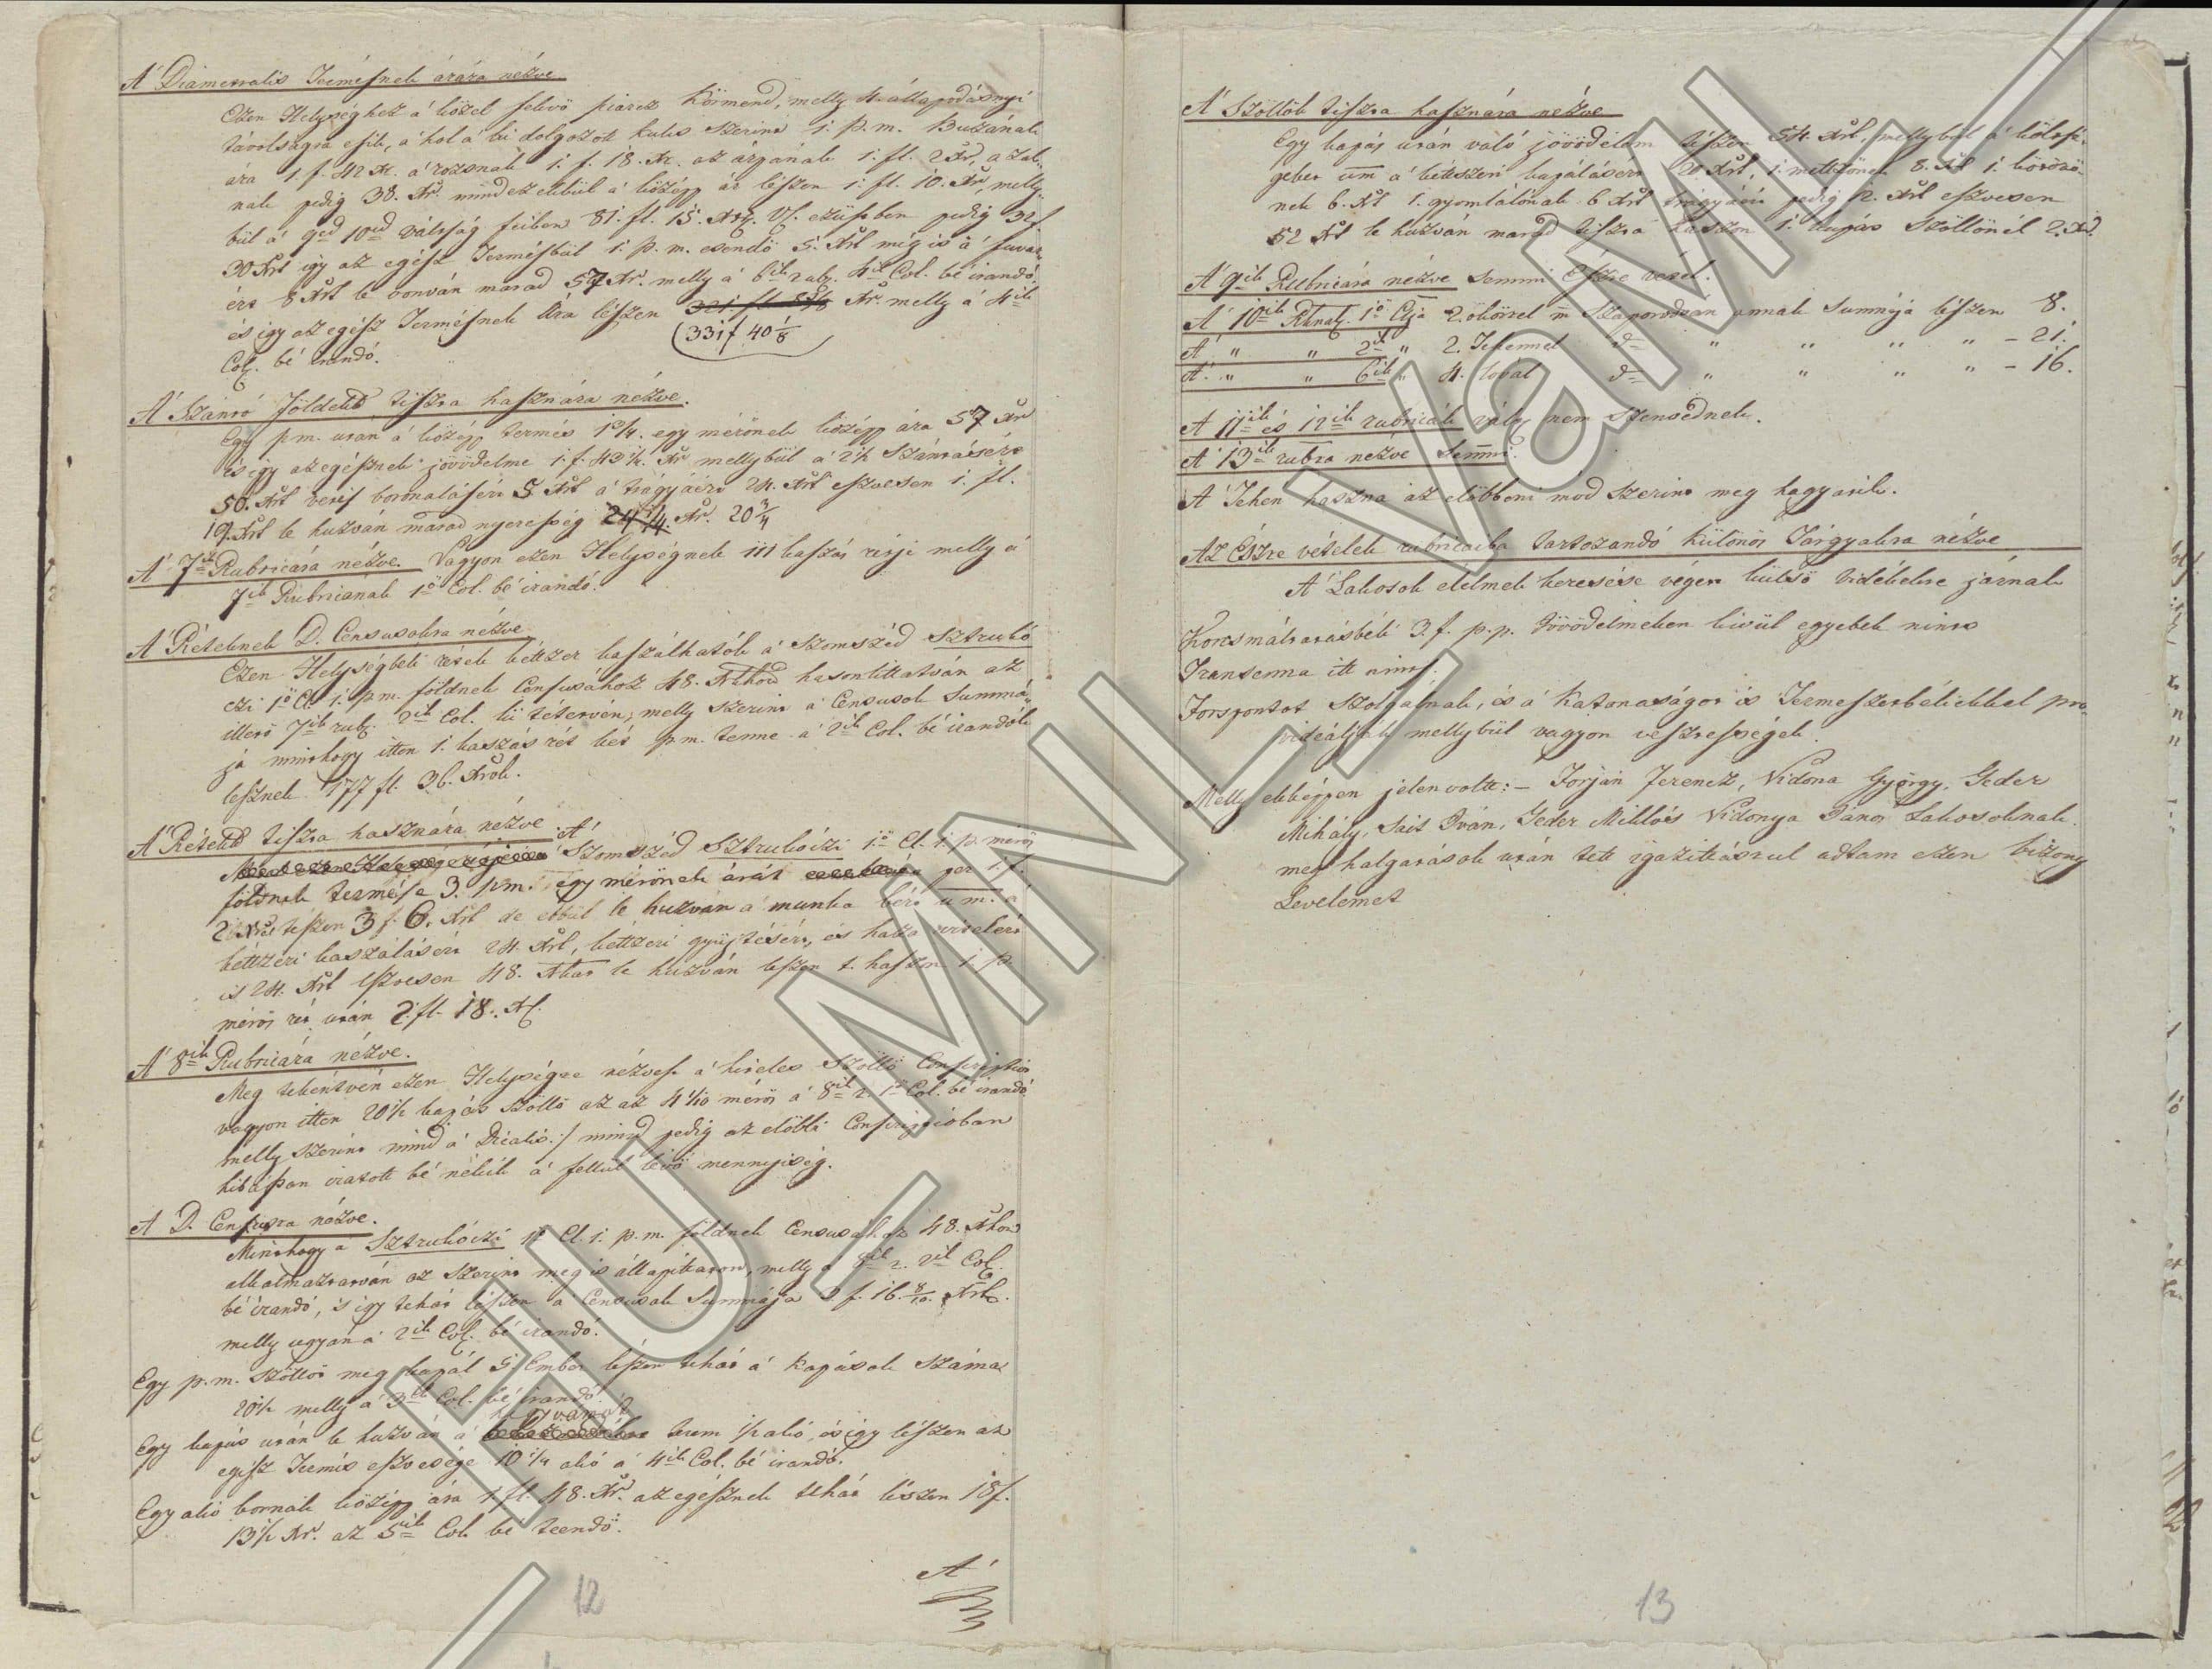 A' Diametralis Termésnek árára nézve
Ezen Helységhez a' közel fekvő piarcz Körmend, melly 4. állapodásnyi
távolságra esik, a' hol a' ki dolgozott kulcs szerint 1. p. m. Buzának
ára 1. f. 42 xr. a' rozsnak 1. f. 18. xr. az árpának 1. fl. 2 xr, a zab-
nak pedig 38. xr. mind ezekbül a' közép ár lészen 1. fl. 10. xr, melly-
bül a' 9ed 10ed váltság fejiben 81. fl. 15. xrt. Vf. ezüstben pedig 32 f
30 xrt így az egész Termésbül 1. p. m. esendő 5. xrt még is a' fuvar-
ért 8 xrt le vonván marad 57 xr. melly a' 6ik rub. 4ik Col. bé irandó
és így az egész Termésnek Ára lészen xr. melly a' 4ik
(331 f 40 1/8
Col. bé irandó.
A' Szántó földekk tiszta hasznára nézve.
Egy p.m. után a' közép termés 1 3/4. egy mérőnek közép ára 57 xr
és így az egésznek jövödelme 1. f. 43 1/2. xr mellybül a' 2 1/2 szántásért
50. xrt veres boronalásért 5 xrt a' trágyáért 24. xrt eszvesen 1. fl.
19. xrt le huzván marad nyereség 24 1/4. xr. 20 3/4
A' 7ik Rubricára nézve. Vagyon ezen Helységnek 111 kaszás rétje melly a'
7ik Rubricának 1ő Col. bé irandó.
A' Réteknek D. Censusokra nézve
Ezen Helységbeli rétek kétszer kaszálhatók a' szomszéd Sztrukó
czi 1ő Cl. 1. p.m. földnek Censusához 48. xrhoz hasonlittatván az
illető 7ik rub. 2ik Col. ki tétetvén, melly szerint a' Censusok Summá-
ja minthogy itten 1. kaszás rét két p.m. tenne a' 2ik Col. bé irandók
lesznek 177 fl. 36. xrok.
A' Rétekk tiszta hasznára nézve
A' szomszéd Sztrukóczi 1ő Cl. 1. p. mérős
földnek termése 3. p.m. egy mérőnek árát per 1. f.
2 xrt teszen 3 f. 6. xrt de ebbül le huzván a' munka bért u. m. a'
kétszeri kaszálásért 24. xrt, kettzeri gyüjtésért, és haza vitelért
is 24. xrt eszvesen 48. xrkat le huzván leszen t. haszn. 1. p.
mérős rét után 2. fl. 18. xr.
A' 8ik Rubricára nézve.
Meg tekéntvén ezen Helységre nézvest a' hiteles szöllő Conscriptiot
vagyon itten 20 1/2 kapás szöllő az az 4 1/10 mérős a' 8ik r. 1ő Col. bé irandó
melly szerint mind a' Dicalis:/ mind pedig az előbbi Conscriptióban
hibássan iratott bé nékik a' fellül lévő mennyiség.
A D. Censusra nézve.
Minthogy a' Sztrukóczi 1ő Cl. 1. p. m. földnek Censusához 48. xrhoz
alkalmaztatván az szerint meg is állapittatott, melly a' 8ik r. 2ik Col.
bé irandó, és így tehát lészen a' Censusok Summája 3 f. 16. 8/10. xrk.
melly ugyan a' 2ik Col. bé irandó.
Egy p.m. szöllőt meg kapál 5. Ember lészen tehát a' kapások száma
20 1/2 melly a' 3ik Col. bé irandó.
Egy kapás után le huzván a' hegy vámot terem 1/2 akó, és így lészen az
egész Termés eszvesége 10 1/4 akó a' 4ik Col. bé irandó.
Egy akó bornak közép ára 1. fl. 48. xr. az egésznek tehát lészen 18 f.
13 1/2 xr. az 5ik Col. bé teendő.
A'
12
A' Szöllők tiszta hasznára nézve
Egy kapás után való jövödelem tészen 54. xrt, mellybül a' költsé-
geket u.m a' kétszeri kapálásért 20 xrt, 1. mettzőnek 8. xrt 1. kötöző
nek 6. xrt 1. gyomlálónak 6 xrt trágyáért pedig 12. xrt eszvesen
52 xrt le huzván marad tiszta haszon 1. kapás Szöllőnél 2. xr.
A' 9ik Rubricára nézve semmi Észre vétel.
A' 10ik Rbnak. 1ő Clja 2. ökörrel m szaporodván annak Summája lészen 8.
A' " " 2ik " 2. Tehennel d= " " " " - 21.
A' " " 6ik " 4. lóval d= " " " " - 16.
A' 11ik és 12ik rubricák válz nem szenvednek.
A' 13ik rubra nézve Semmi.
A' Tehen haszna az előbbeni mód szerint meg hagyatik.
Az Észre vételek rubricáiba tartozandó különös Tárgyakra nézve
A' Lakosok élelmek keresése végett külső vidékekre járnak
Korcsmáltatásbéli 3. f. p.p. Jövödelmeken kivül egyebek nincs
Transenna itt nincs.
Forspontot szolgálnak, és a' katonaságot is Termeszetbéliekkel pro-
videálják mellybül vagyon veszteségek.
Melly eképpen jelen voltt:- Forján Ferencz, Vidona György, Geder
Mihály, Sait Iván, Geder Miklós Vidonya János Lakosoknak
meg halgatások után tett igazitásrul adtam ezen bizony
Levelemet
13
HU MNL VaML